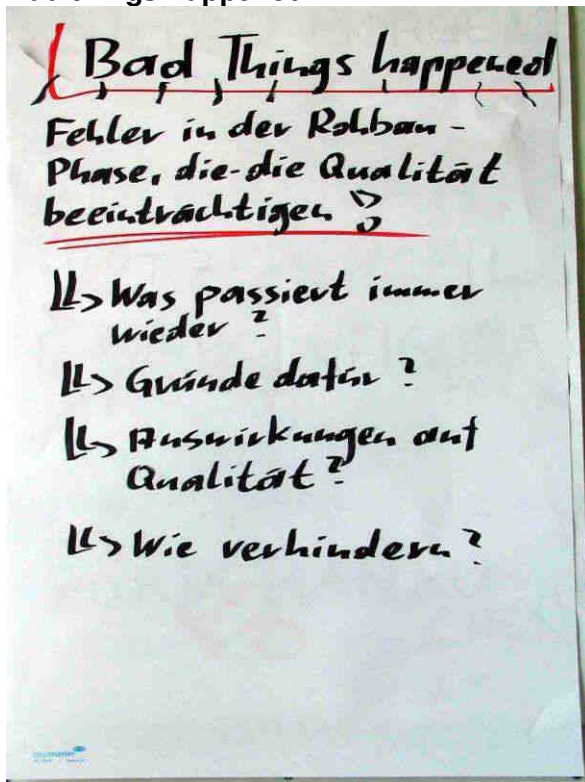 Bad Things happened
Fehler in der Rohbau-
Phase, die die Qualität
beeinträchtigen !
↳ Was passiert immer
wieder ?
↳ Gründe dafür ?
↳ Auswirkungen auf
Qualität ?
↳ Wie verhindern ?